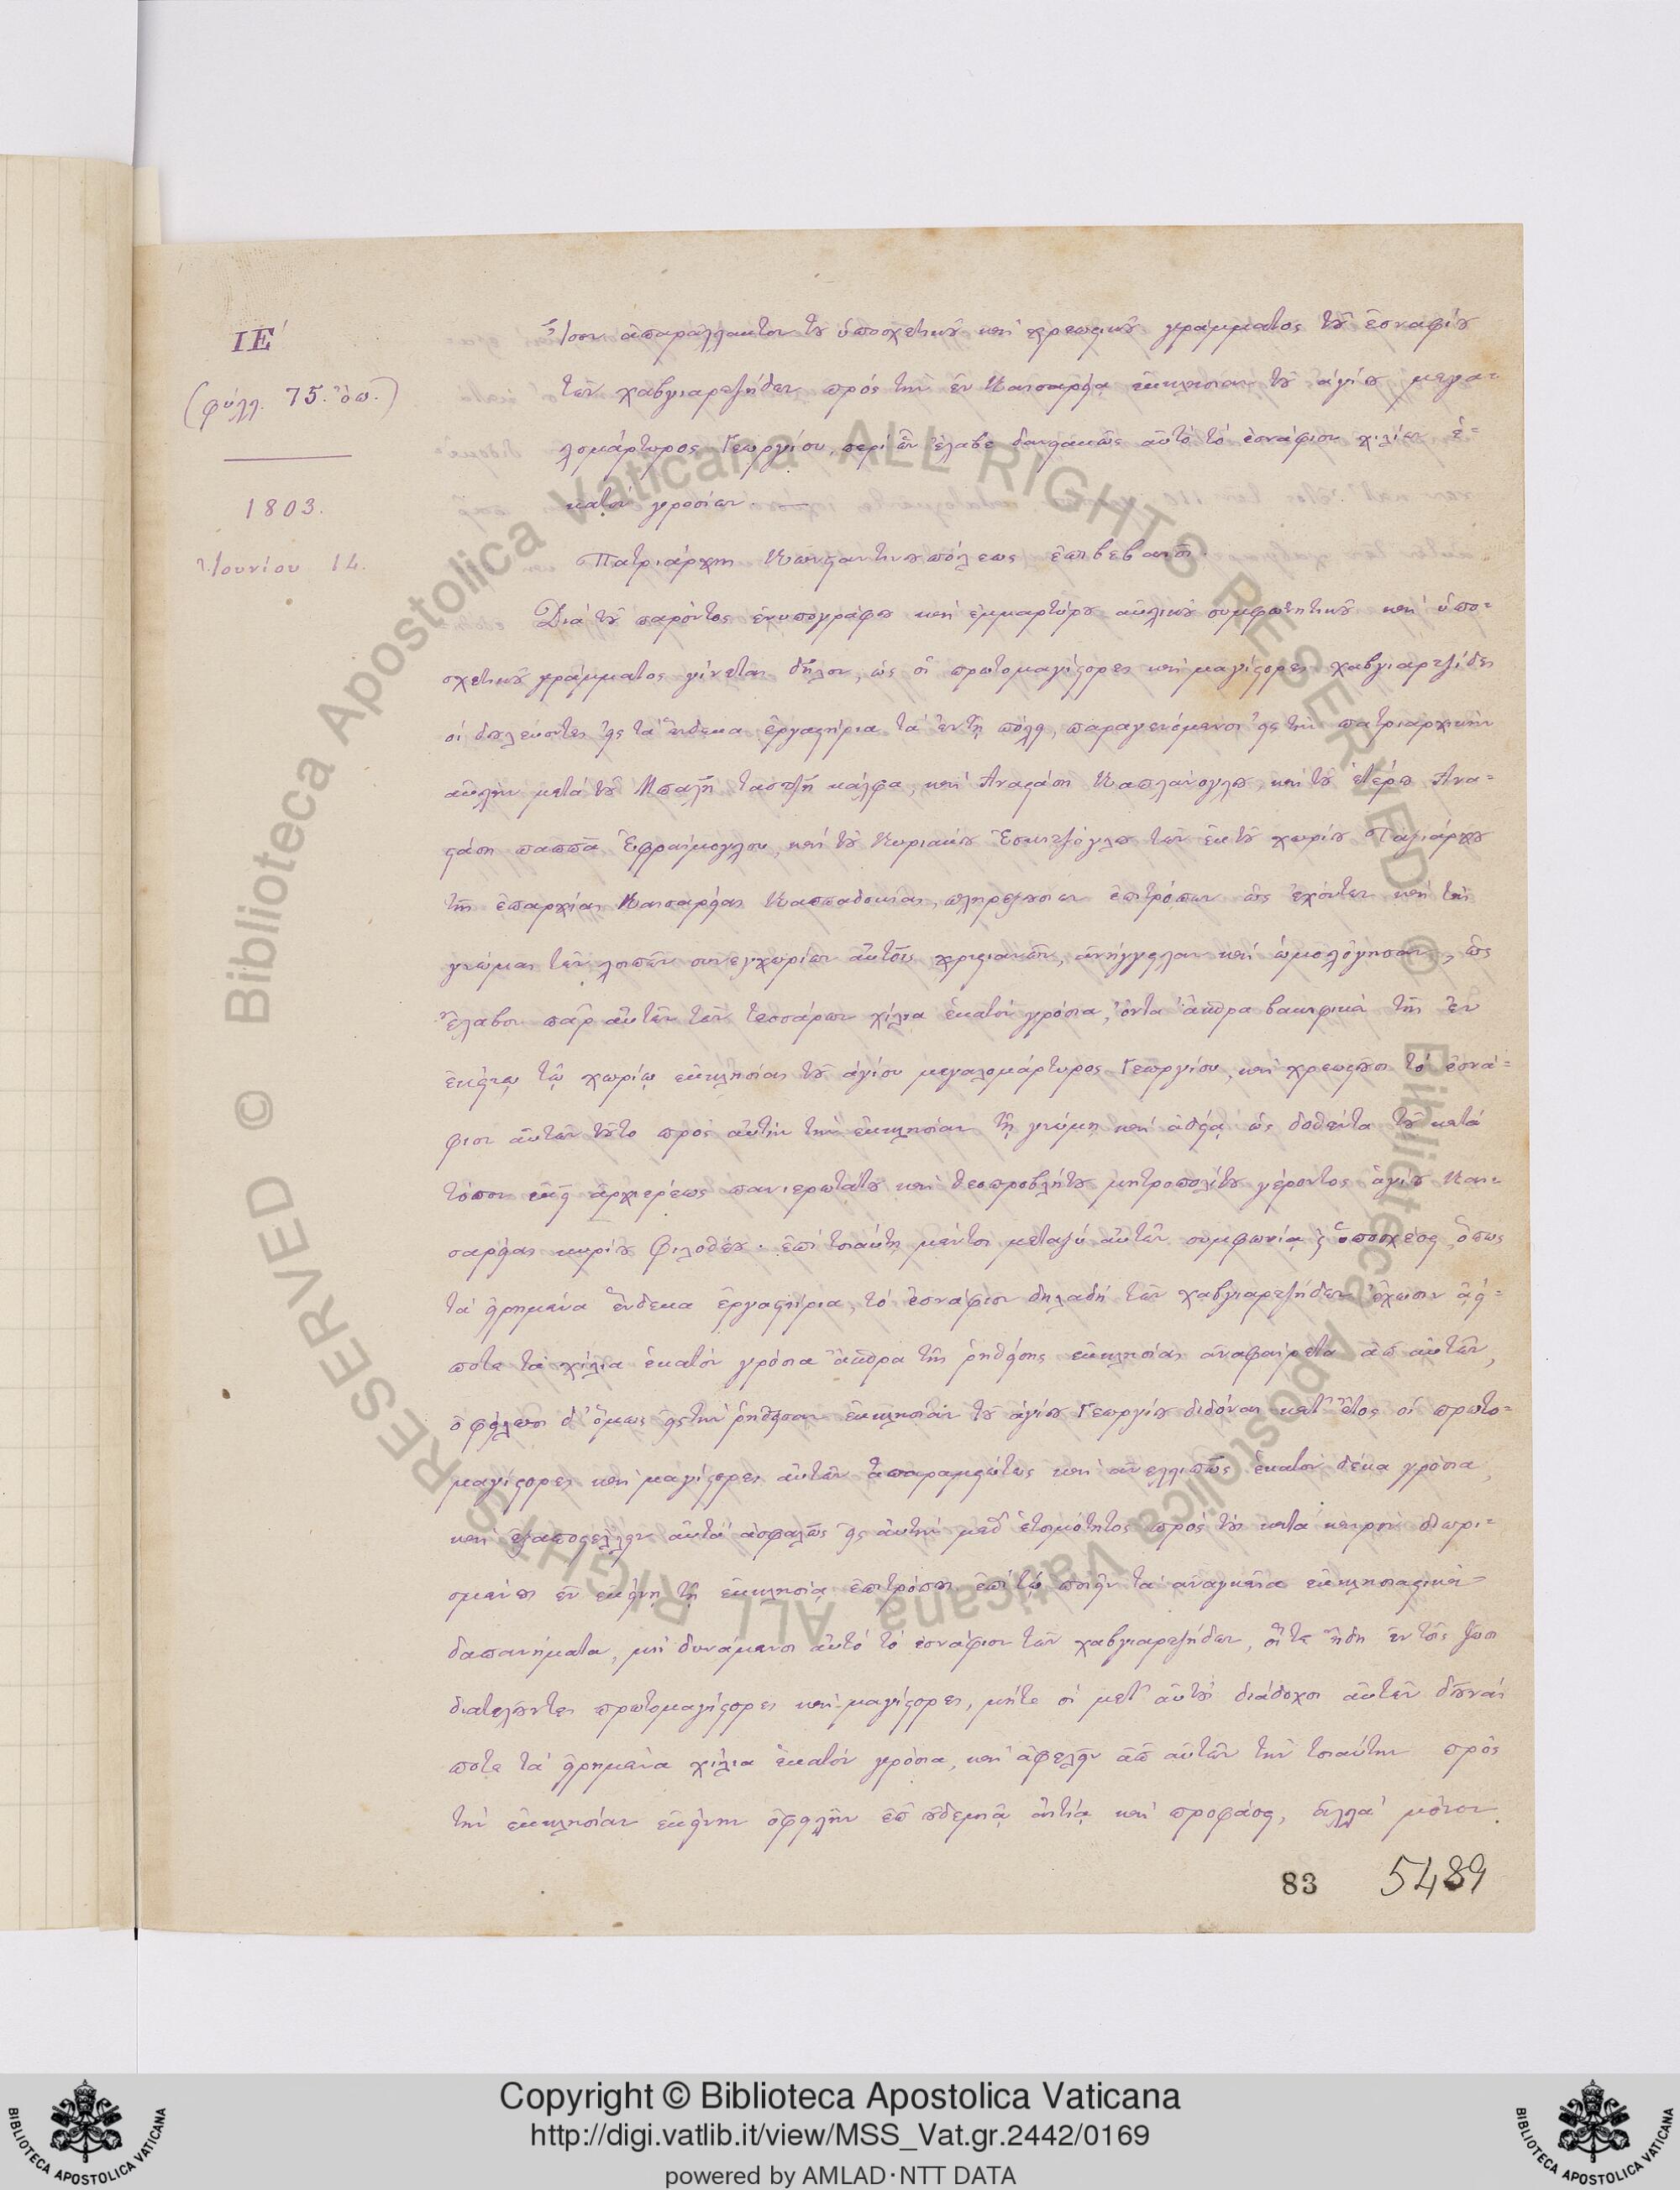 ΙΕ΄
(φύλλ. 75. ὄπ.)
1803.
Ἰουνίου 14.
Ἴσον ἀπαράλλακτον τοῦ ὑποσχετικοῦ καὶ χρεωστικοῦ γράμματος τοῦ ἐσναφίου
τῶν χαβγιαρτζήδων πρὸς τὴν ἐν Καισαρείᾳ ἐκκλησίαν τοῦ ἁγίου μεγα-
λομάρτυρος Γεωργίου, περὶ ὧν ἔλαβε δανειακῶς αὐτὸ τὸ ἐσνάφιον χιλίων ἑ-
κατὸν γροσίων. —
Πατριάρχης Κωνσταντινουπόλεως ἐπιβεβαιοῖ.
Διὰ τοῦ παρόντος ἐνυπογράφου καὶ ἐμμαρτύρου αὐλικοῦ συμφωνητικοῦ καὶ ὑπο-
σχετικοῦ γράμματος γίνεται δῆλον, ὡς οἱ πρωτομαγίστορες καὶ μαγίστορες χαβγιαρτζίδες
οἱ δουλεύοντες εἰς τὰ ἕνδεκα ἐργαστήρια τὰ ἐν τῇ πόλει, παραγενόμενοι εἰς τὴν πατριαρχικὴν
αὐλὴν μετὰ τοῦ Μπαλῆ ταστζῆ κάλφα, καὶ Ἀναστάση Καπλάνογλου, καὶ τοῦ ἑτέρου Ἀνα-
στάση παππᾶ Ἐφραίμογλου, καὶ τοῦ Κυριακοῦ Ἐσκιτζόγλου τῶν ἐκ τοῦ χωρίου Ταξιάρχου
τῆς ἐπαρχίας Καισαρείας Καππαδοκίας, πληρεξουσίων ἐπιτρόπων ὡς ἐχόντων καὶ τὴν
γνώμην τῶν λοιπῶν συνεγχωρίων αὐτοῖς χριστιανῶν, ἀνήγγειλαν καὶ ὡμολόγησαν, ὡς
ἔλαβον παρ' αὐτῶν τῶν τεσσάρων χίλια ἑκατὸν γρόσια, ὄντα ἄσπρα βακουφικὰ τῆς ἐν
ἐκείνῳ τῷ χωρίῳ ἐκκλησίας τοῦ ἁγίου μεγαλομάρτυρος Γεωργίου, καὶ χρεωστοῦσι τὸ ἐσνά-
φιον αὐτῶν τοῦτο πρὸς αὐτὴν τὴν ἐκκλησίαν τῇ γνώμῃ καὶ ἀδείᾳ ὡς δοθέντα τοῦ κατὰ
τόπον ἐκεῖ ἀρχιερέως πανιερωτάτου καὶ θεοπροβλήτου μητροπολίτου γέροντος ἁγίου Και-
σαρείας κυρίου Φιλοθέου· ἐπὶ τοιαύτῃ μέντοι μεταξὺ αὐτῶν συμφωνίᾳ ϛ ὑποσχέσει, ὅπως
τὰ εἰρημένα ἕνδεκα ἐργαστήρια, τὸ ἐσνάφιον δηλαδὴ τῶν χαβγιαρτζήδων ἔχωσιν ἀεί-
ποτε τὰ χίλια ἑκατὸν γρόσια ἄσπρα τῆς ῥηθείσης ἐκκλησίας ἀναφαίρετα ἀπ' αὐτῶν,
ὀφείλωσι δ' ὅμως εἰς τὴν ῥηθεῖσαν ἐκκλησίαν τοῦ ἁγίου Γεωργίου διδόναι κατ' ἔτος οἱ πρωτο-
μαγίστορες καὶ μαγίστορες αὐτῶν ἀπαραμειώτως καὶ ἀνελλιπῶς ἑκατὸν δέκα γρόσια,
καὶ ἐξαποστέλλειν αὐτὰ ἀσφαλῶς εἰς αὐτὴν μεθ' ἑτοιμότητος πρὸς τοὺς κατὰ καιροὺς διωρι-
σμένους ἐν ἐκείνῃ τῇ ἐκκλησίᾳ ἐπιτρόπους ἐπὶ τῷ ποιεῖν τὰ ἀναγκαῖα ἐκκλησιαστικὰ
δαπανήματα, μὴ δυνάμενοι αὐτὸ τὸ ἐσνάφιον τῶν χαβγιαρτζήδων, οἵτε ἤδη ἐν τοῖς ζῶσι
διατελοῦντες πρωτομαγίστορες καὶ μαγίστορες, μήτε οἱ μετ' αὐτοὺς διάδοχοι αὐτῶν δοῦναί
ποτε τὰ εἰρημένα χίλια ἑκατὸν γρόσια, καὶ ἀφελεῖν ἀπ' αὐτῶν τὴν τοιαύτην πρὸς
τὴν ἐκκλησίαν ἐκείνην ὀφειλὴν ἐπ' οὐδεμιᾷ αἰτίᾳ καὶ προφάσει, ἀλλὰ μόνον
83 5489
© Biblioteca Apostolica Vaticana ALL RIGHTS RESERVED © Biblioteca Apostolica Vaticana ALL RIGHTS RESERVED
Copyright © Biblioteca Apostolica Vaticana
http://digi.vatlib.it/view/MSS_Vat.gr.2442/0169
powered by AMLAD·NTT DATA
BIBLIOTECA APOSTOLICA VATICANA
BIBLIOTECA APOSTOLICA VATICANA